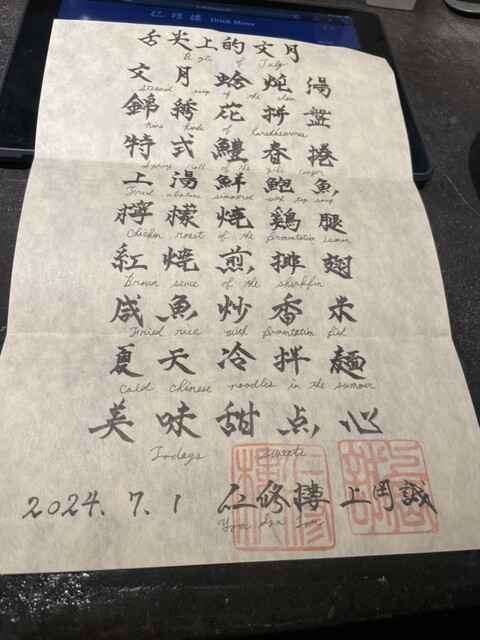 仁修樓 Drink Menu
舌尖上的文月
Bite of July
文月蛤炖湯
Steamed soup of the clam
錦繡花拼盤
Nine kinds of
特式鱧春捲
Spring roll of the Pike Conger
上湯鮮鮑魚
Fried abalone simmered with top soup
檸檬燒鶏腿
Chicken roast of the fermentation lemon
紅燒煎排翅
Broun sauce of the sharkfin
咸魚炒香米
Fried rice with fermentation fish
夏天冷拌麺
Cold Chinese noodles in the summer
美味甜点心
Todays sweets
2024.7.1 仁修樓 上岡誠